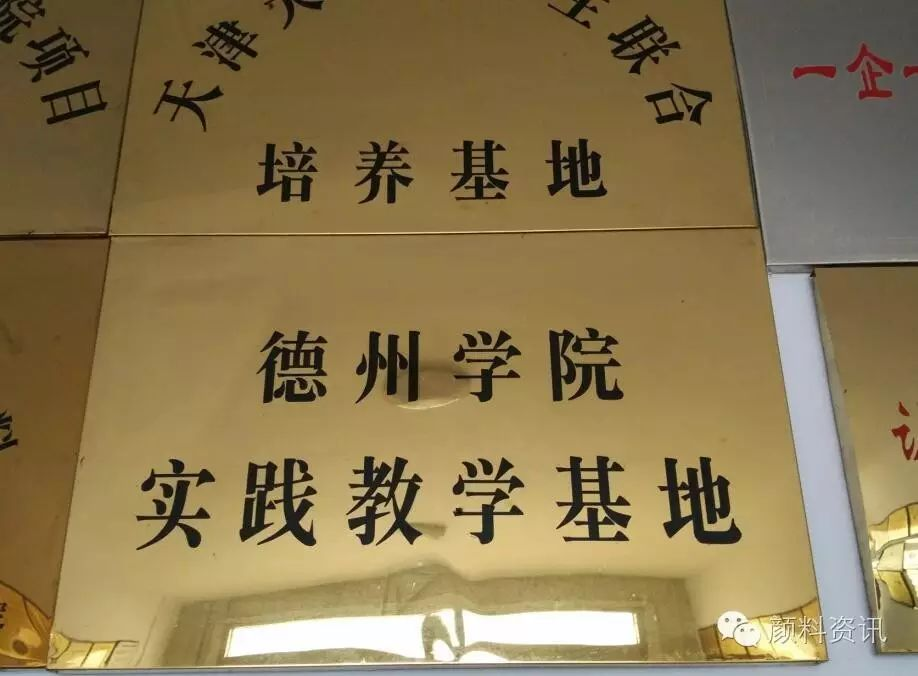 院项目
天津
生联合
培养基地
一企一
德州学院
实践教学基地
颜料资讯